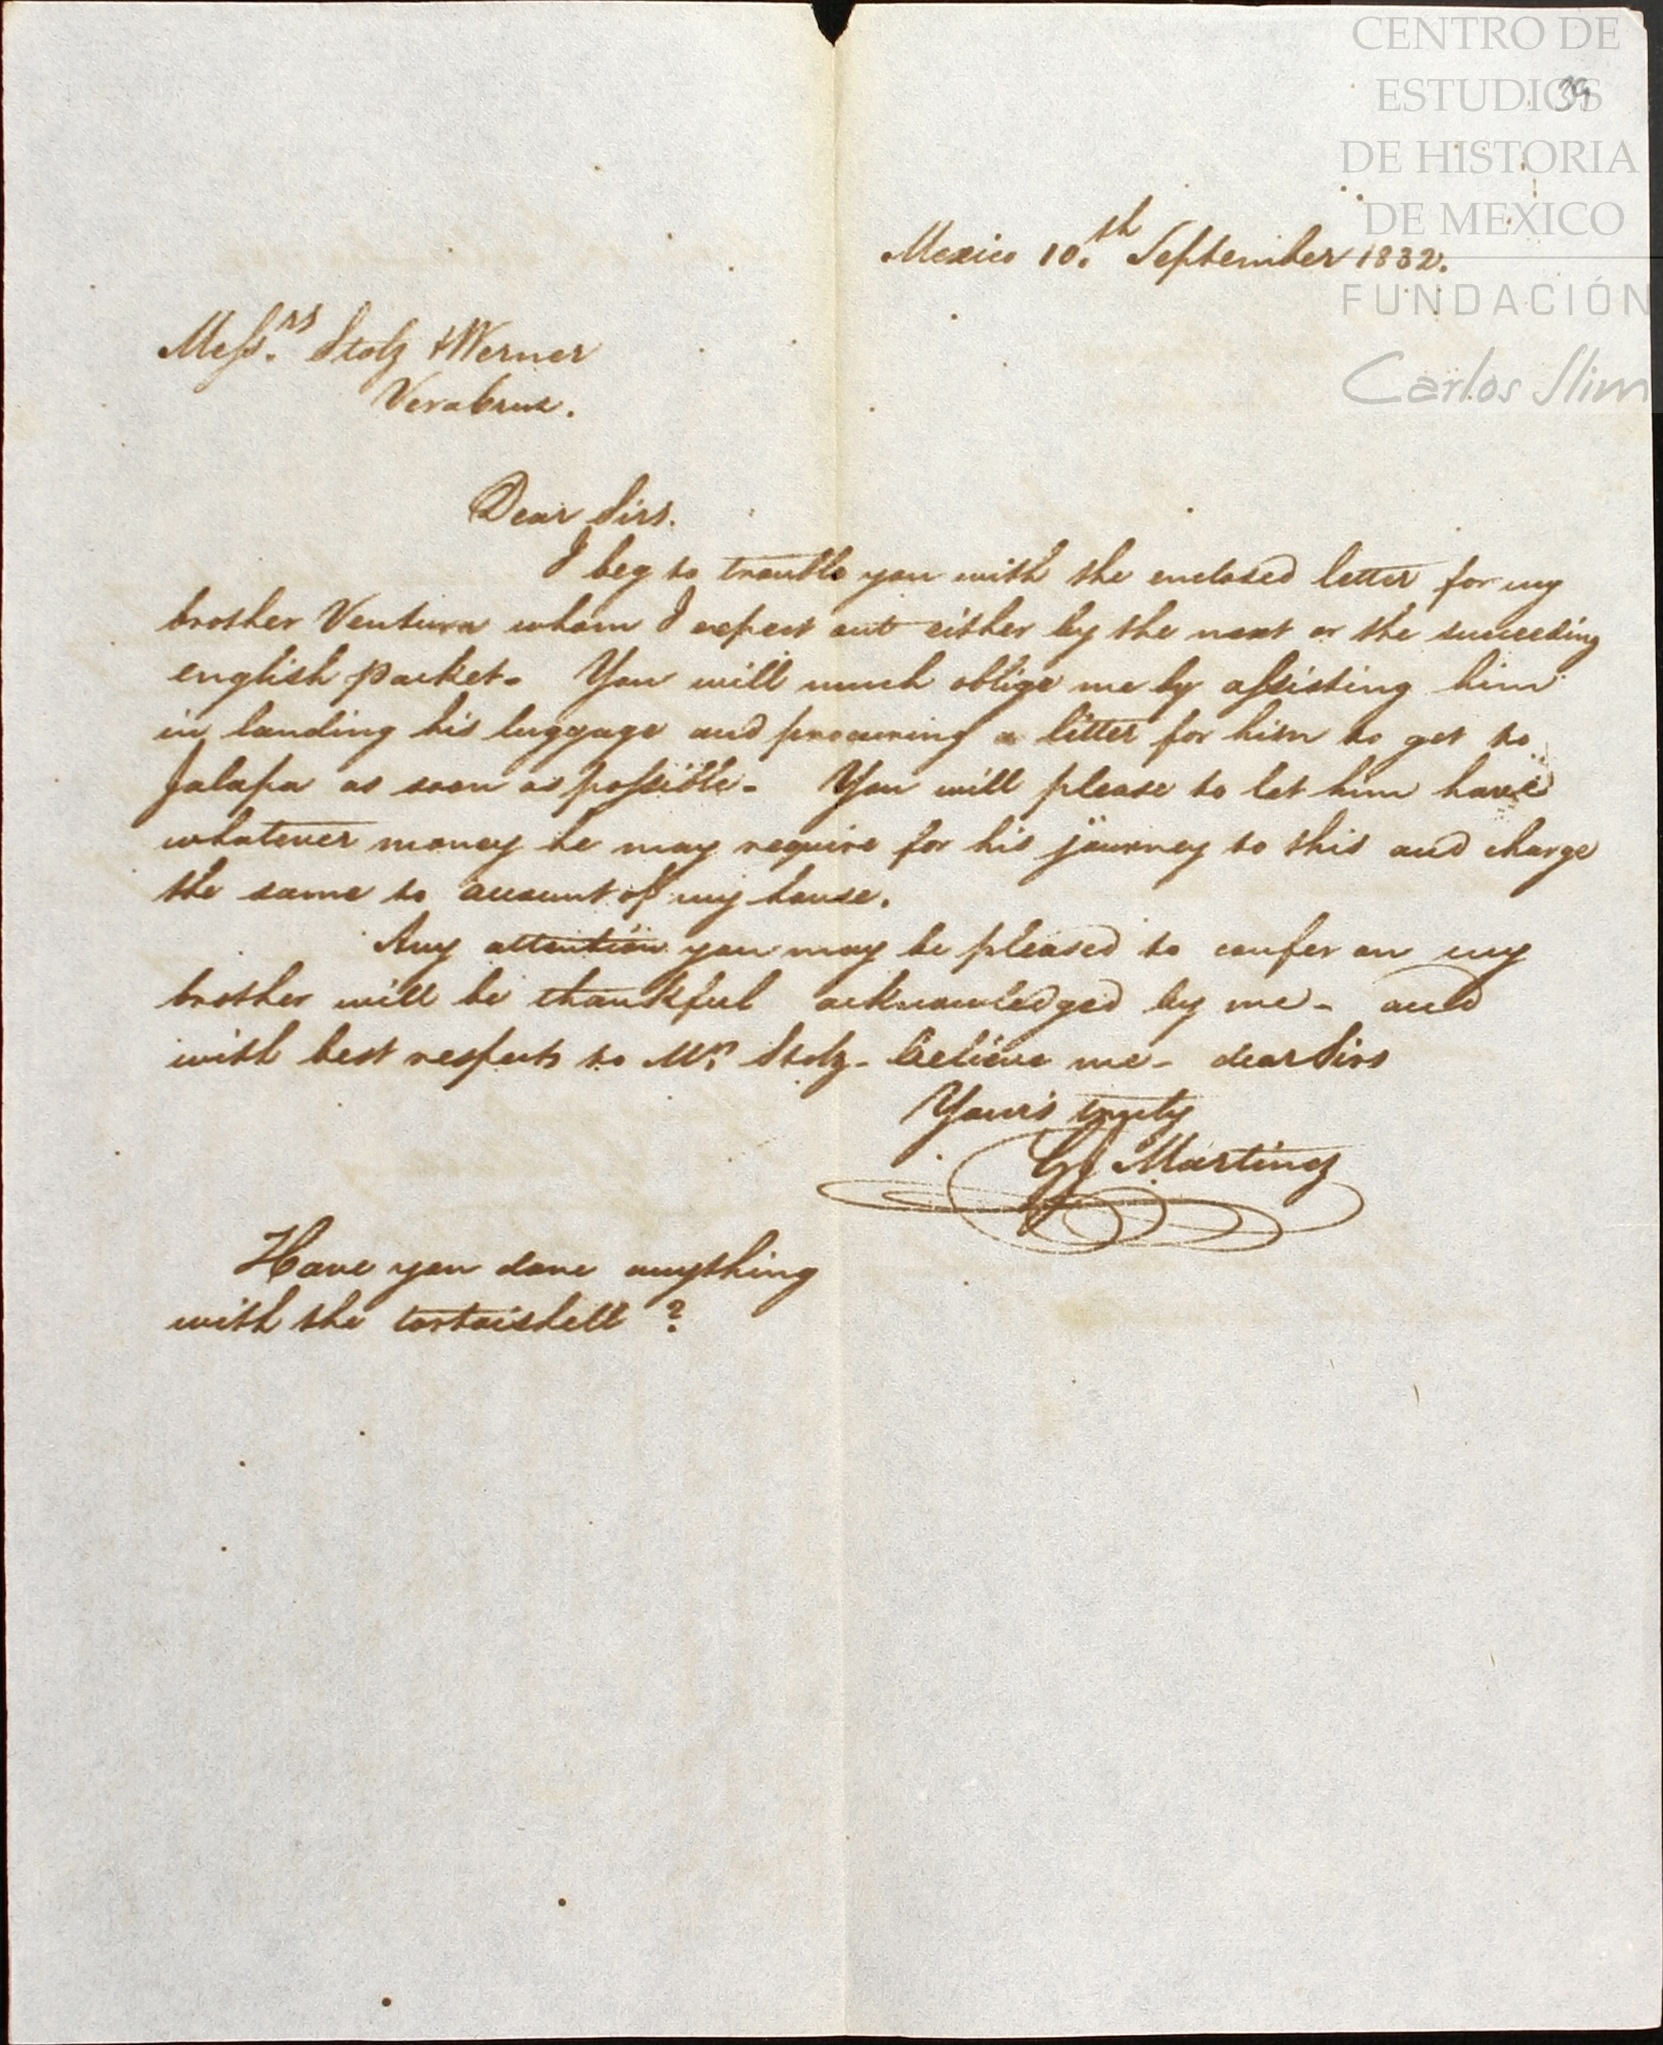 CENTRO DE
ESTUDIOS
DE HISTORIA
DE MEXICO
FUNDACIÓN
Carlos Slim
39
Mexico 10.th September 1832.
Messrs. Stolz & Werner
Veracruz.
Dear Sirs.
I beg to trouble you with the enclosed letter for my
brother Ventura whom I expect out either by the next or the succeeding
english packet. You will much oblige me by assisting him
in landing his luggage and procuring a litter for him to get to
Jalapa as soon as possible. You will please to let him have
whatever money he may require for his journey to this and charge
the same to account of my house.
Any attention you may be pleased to confer on my
brother will be thankful acknowledged by me - and
with best respects to Mr. Stolz - believe me - dear Sirs
Your's truly
Martinez
Have you done anything
with the tortoishell ?